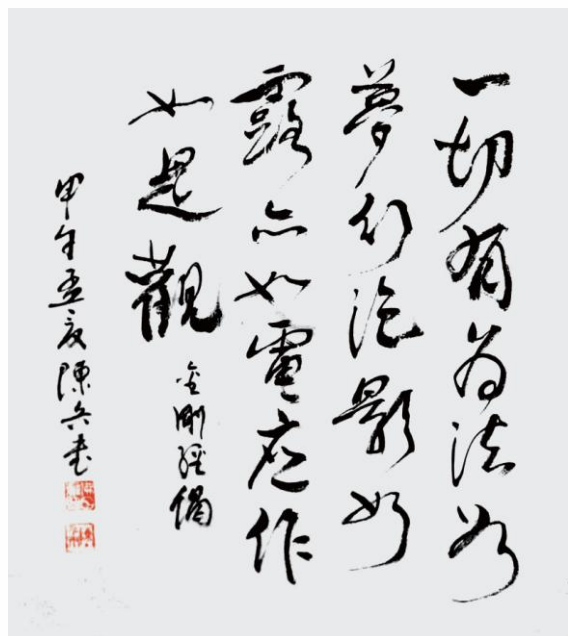 一切有為法如
夢幻泡影如
露亦如電應作
如是觀
金剛經偈
甲午孟夏陳兵書